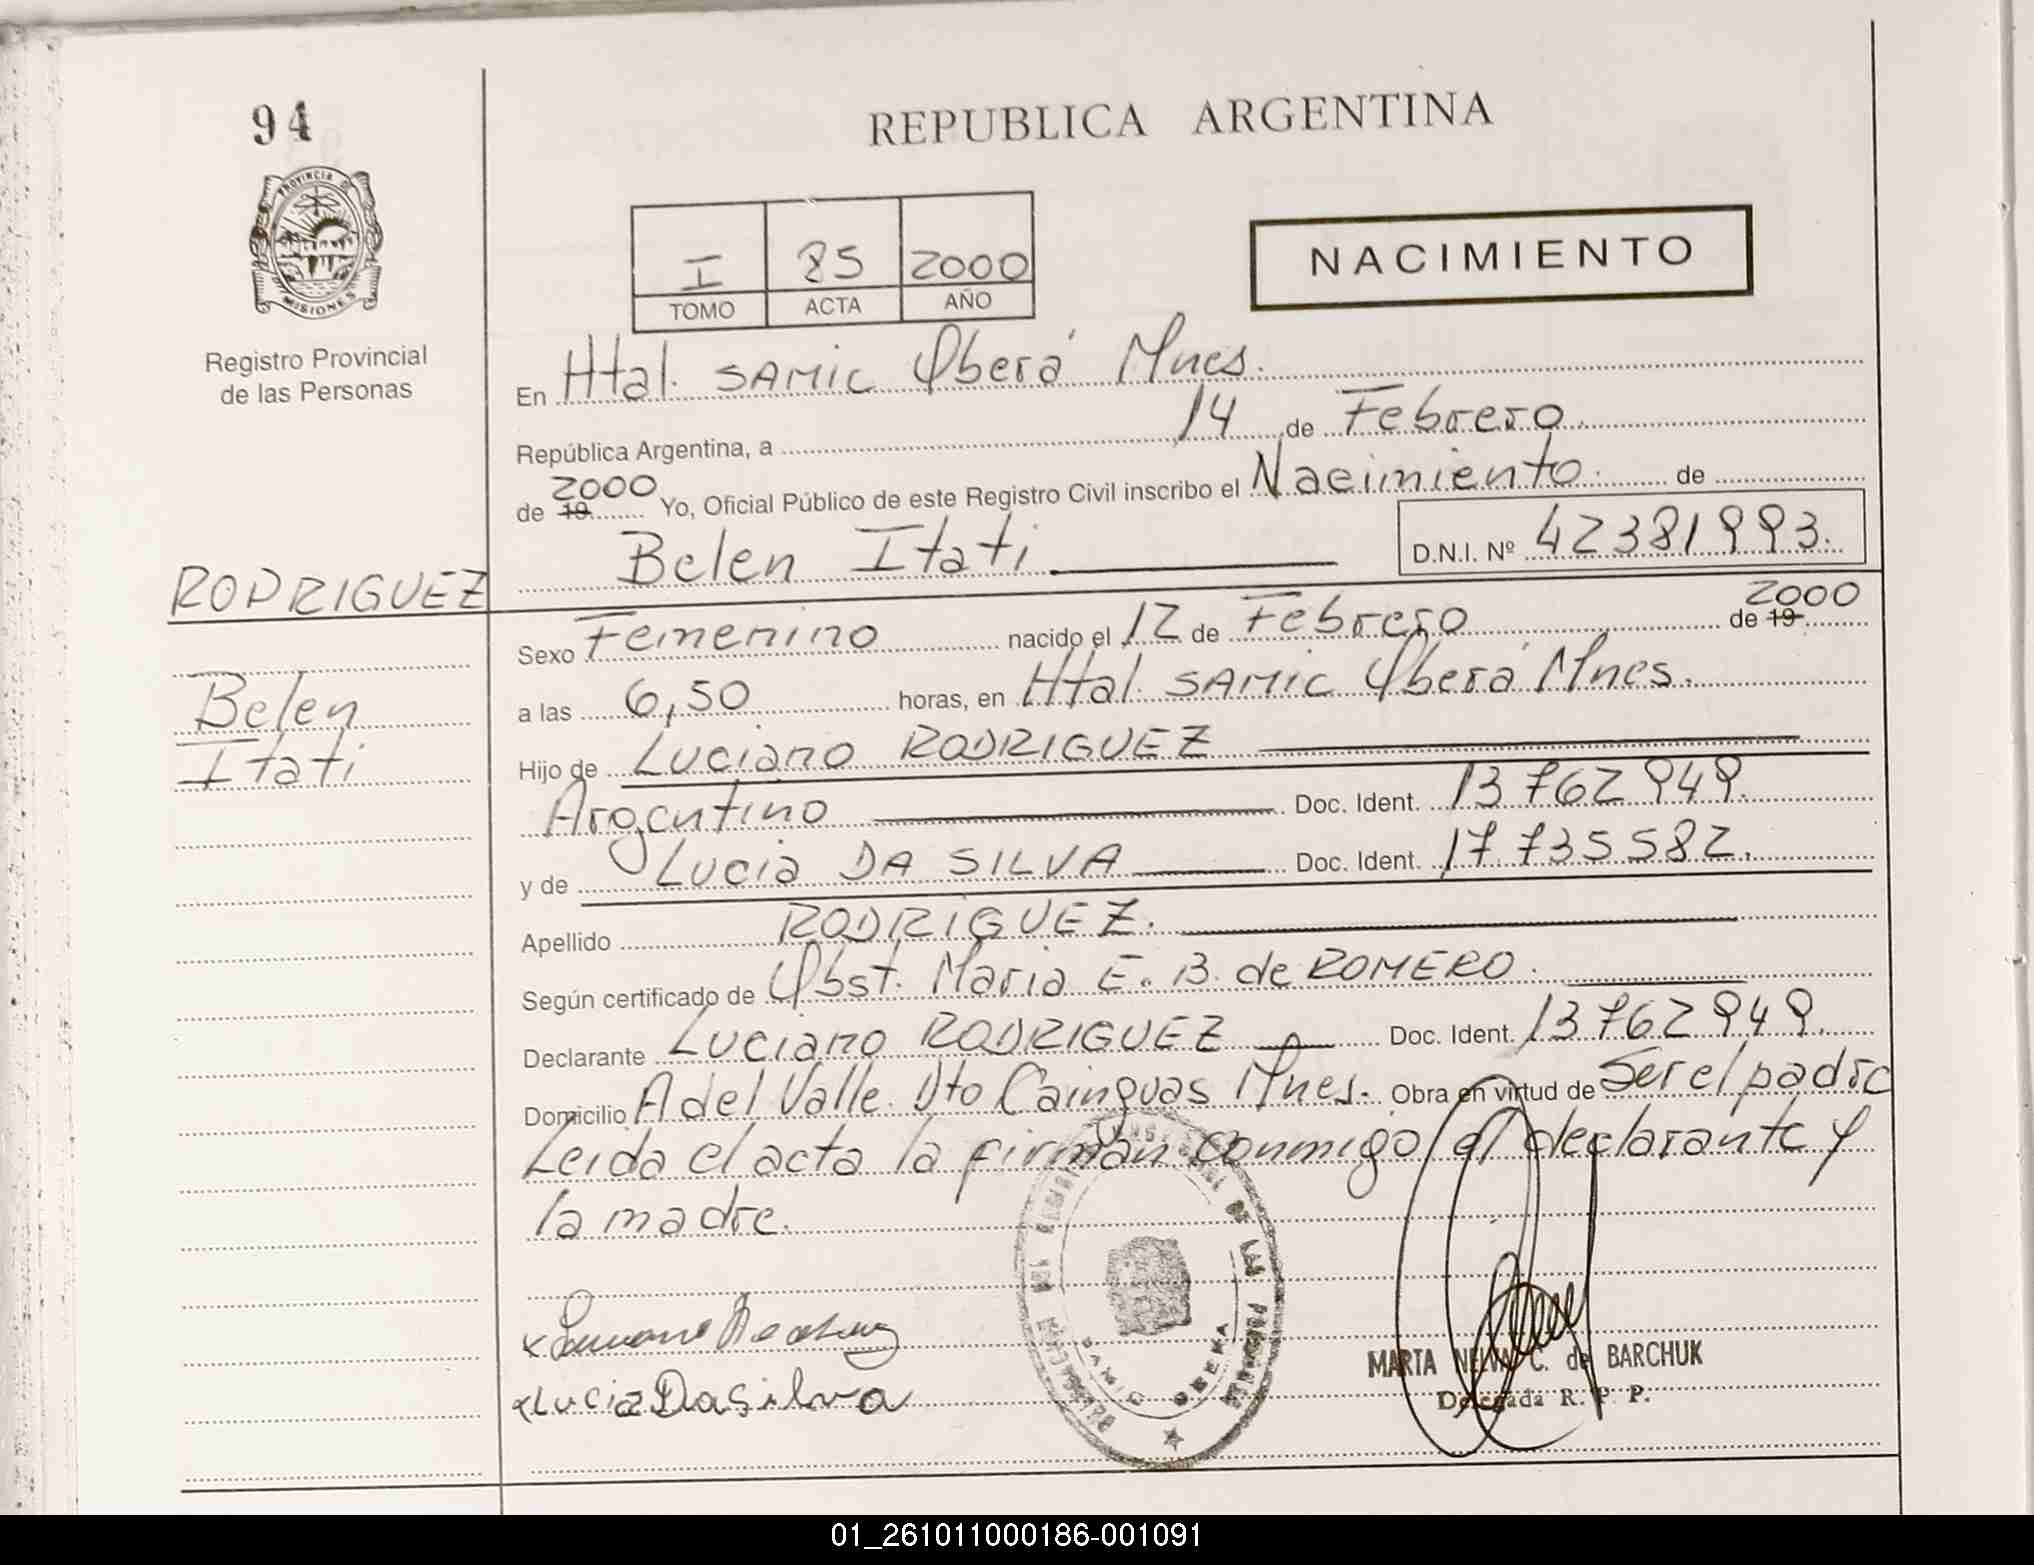 94
REPUBLICA ARGENTINA
PROVINCIA DE
MISIONES
I 85 2000
TOMO ACTA AÑO
NACIMIENTO
Registro Provincial
de las Personas
En Htal. SAMIC Oberá Mnes.
República Argentina, a 14 de Febrero
de 19 2000 Yo, Oficial Público de este Registro Civil inscribo el Nacimiento. de
Belen Itati D.N.I. Nº 42381993.
RODRIGUEZ
Belen
Itati
Sexo Femenino nacido el 12 de Febrero de 19 2000
a las 6,50 horas, en Htal. SAMIC Oberá Mnes.
Hijo de Luciano RODRIGUEZ
Argentino Doc. Ident. 13762949.
y de Lucia DA SILVA Doc. Ident. 17735582.
Apellido RODRIGUEZ.
Según certificado de Obst. Maria E. B. de ROMERO.
Declarante Luciano RODRIGUEZ Doc. Ident. 13762949.
Domicilio A del Valle. Dto Cainguas Mnes. Obra en virtud de Ser el padre
Leida el acta la firman conmigo el declarante y
la madre.
DE LAS
SAMIC OBERA
x Lucia Dasilva
MARTA NELVA C. de BARCHUK
Delegada R. P. P.
01_261011000186-001091